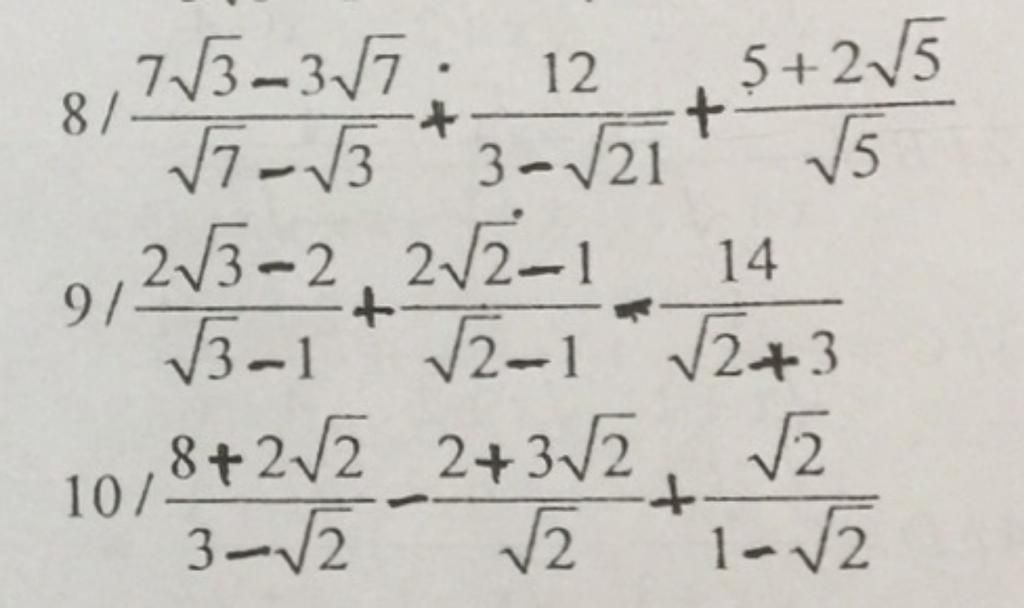 8/ (7√3-3√7)/(√7-√3) + 12/(3-√21) + (5+2√5)/√5
9/ (2√3-2)/(√3-1) + (2√2-1)/(√2-1) - 14/(√2+3)
10/ (8+2√2)/(3-√2) - (2+3√2)/√2 + √2/(1-√2)